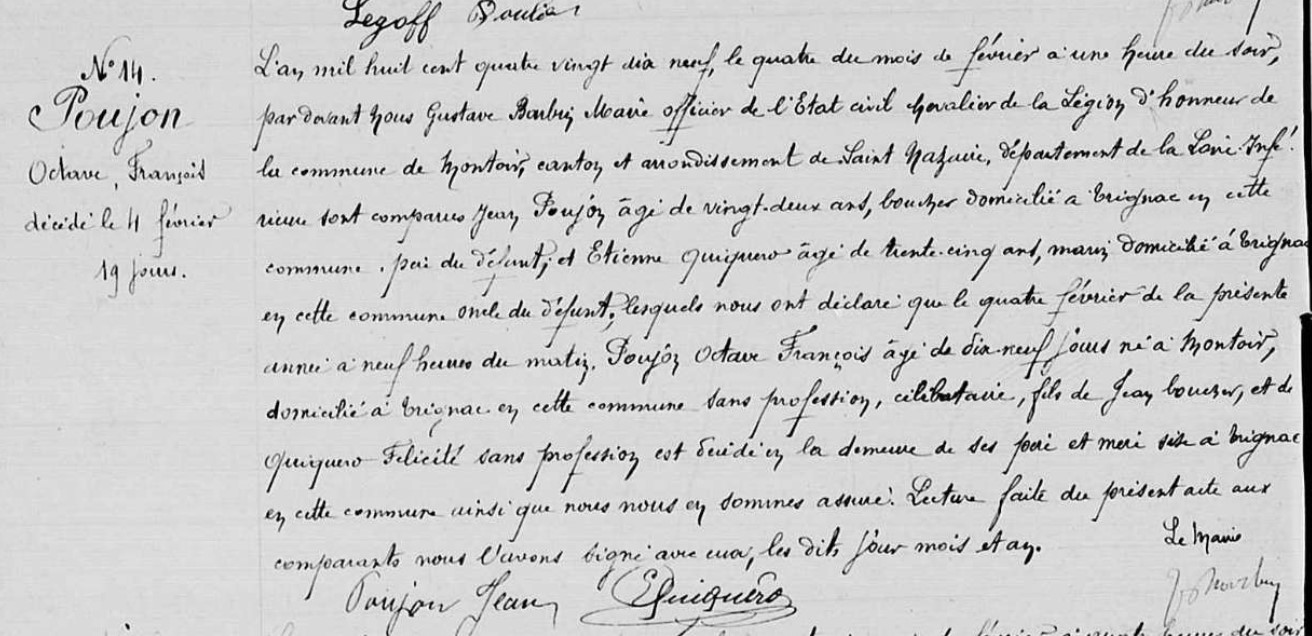 Legoff
N° 14.
Poujon
Octave, François
décédé le 4 février
19 jours.
L'an mil huit cent quatre vingt dix neuf, le quatre du mois de février à une heure du soir,
par devant nous Gustave Barbin Maire officier de l'Etat civil chevalier de la Légion d'honneur de
la commune de Montoir, canton et arrondissement de Saint Nazaire, département de la Loire Infé-
rieure sont comparus Jean Poujon âgé de vingt-deux ans, boucher domicilié à Trignac en cette
commune. père du défunt, et Etienne Quiquero âgé de trente-cinq ans, marin domicilié à Trignac
en cette commune oncle du défunt, lesquels nous ont déclaré que le quatre février de la présente
année à neuf heures du matin. Poujon Octave François âgé de dix-neuf jours né à Montoir,
domicilié à Trignac en cette commune sans profession, célibataire, fils de Jean boucher, et de
Quiquero Félicité sans profession est décédé en la demeure de ses père et mère sise à Trignac
en cette commune ainsi que nous nous en sommes assuré. Lecture faite du présent acte aux
comparants nous l'avons signé avec eux, les dits jour mois et an.
Le Maire
Poujon Jean EQuiquero
février à
heures du soir